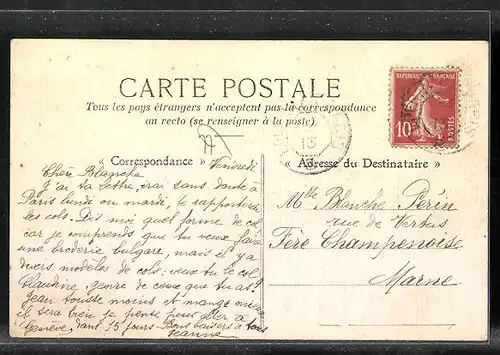 CARTE POSTALE
Tous les pays étrangers n'acceptent pas la correspondance
au recto (se renseigner à la poste)
« Correspondance »
« Adresse du Destinataire »
REPUBLIQUE FRANÇAISE
10
POSTES
13
Vendredi
Chère Blanche
J'ai ta lettre, irai sans doute à
Paris lundi ou mardi, te rapporterai
les cols. Dis moi quel forme de col
car je comprends que tu veux faire
une broderie bulgare, mais il y a
divers modèles de cols: veux tu le col
Claudine, genre de ceux que tu as?
Jean tousse moins et mange mieux
il sera bien je pense pour aller à
Genève, dans 15 jours. Bons baisers à tous
Jeanne
Mlle Blanche Périn
rue de Vertus
Fère Champenoise
Marne